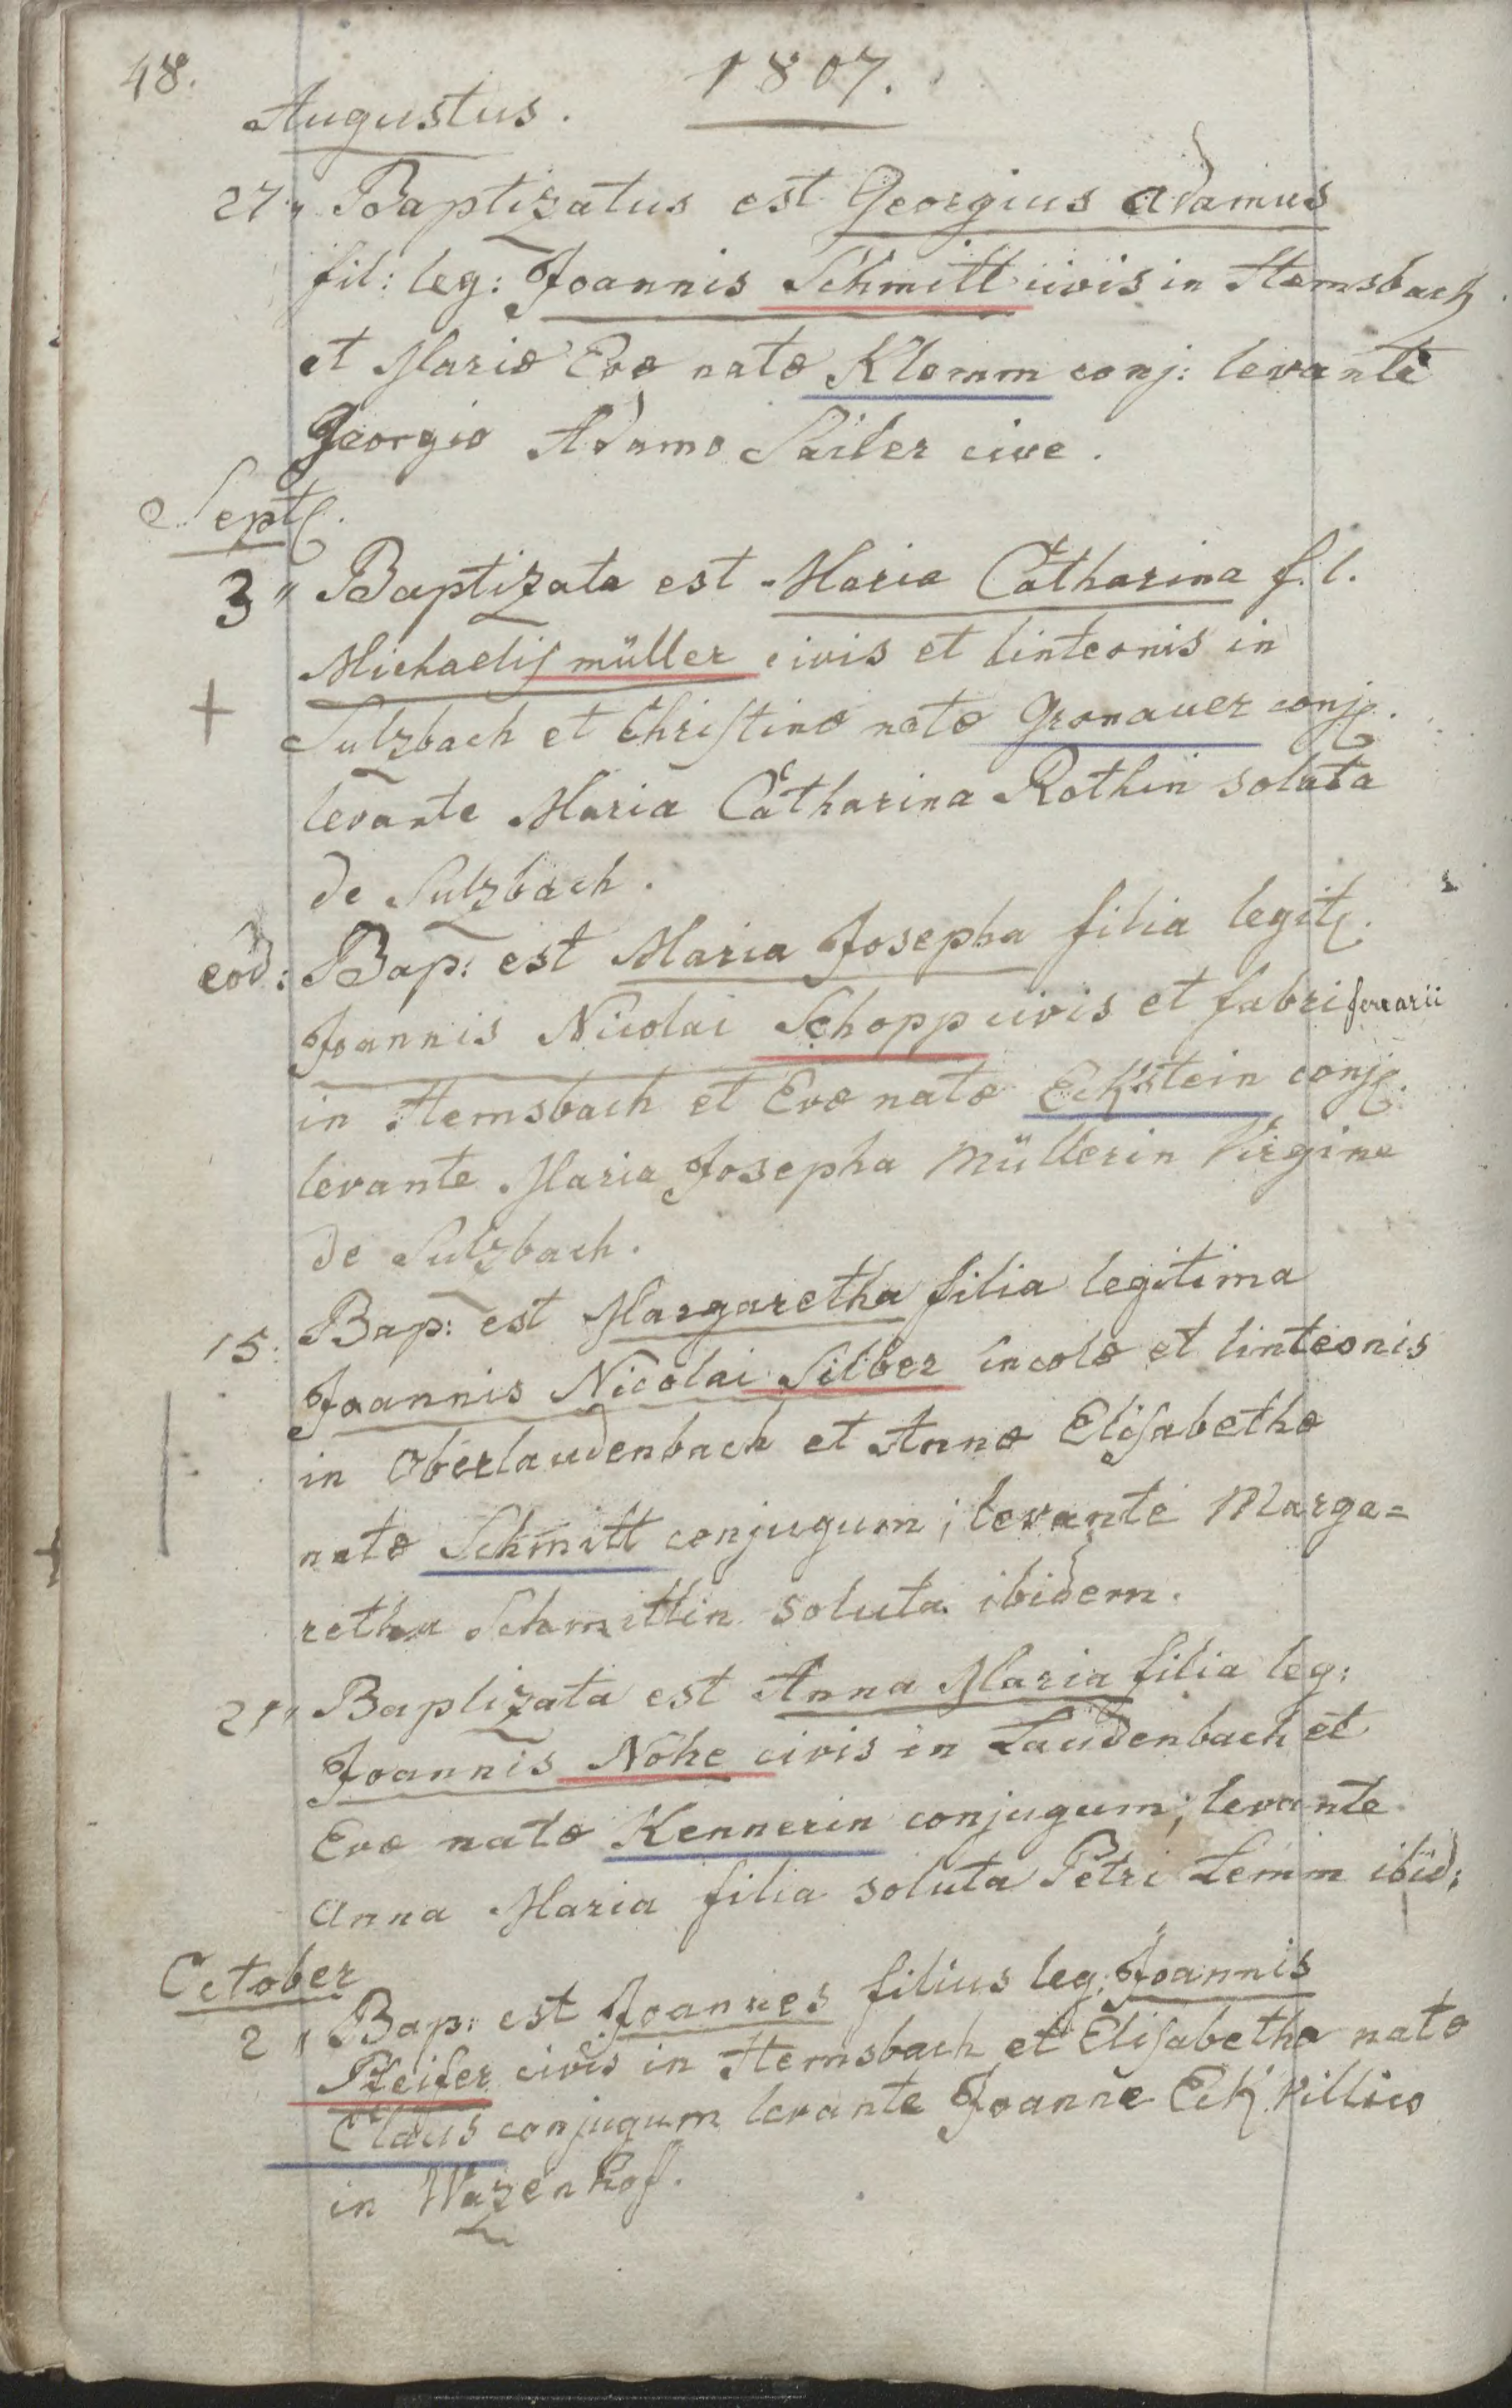 48. 1807.
Augustus.
27" Baptizatus est Georgius Adamus
fil: leg: Joannis Schmitt civis in Hemsbach
et Mariæ Evæ natæ Klemm conj: levante
Georgio Adamo Sailer cive.
Sept.
3" Baptizata est Maria Catharina f. l.
Michaelis müller civis et linteonis in
Sulzbach et Christinæ natæ Gronauer conj.
levante Maria Catharina Rothin soluta
de Sulzbach.
eod: Bap: est Maria Josepha filia legit.
Joannis Nicolai Schopp civis et fabri ferrarii
in Hemsbach et Evæ natæ Eckstein conj.
levante Maria Josepha Müllerin Virgine
de Sulzbach.
15: Bap: est Margaretha filia legitima
Joannis Nicolai Silber incolæ et linteonis
in Oberlaudenbach et Annæ Elisabethæ
natæ Schmitt conjugum; levante Marga=
retha Schmittin soluta ibidem.
21" Baptizata est Anna Maria filia leg:
Joannis Nohe civis in Laudenbach et
Evæ natæ Kennerin conjugum; levante
Anna Maria filia soluta Petri Lemm ibid:
October
2" Bap: est Joannes filius leg: Joannis
Pfeifer civis in Hemsbach et Elisabetha natæ
Claus conjugum levante Joanne Eck Villico
in Wazenhof.